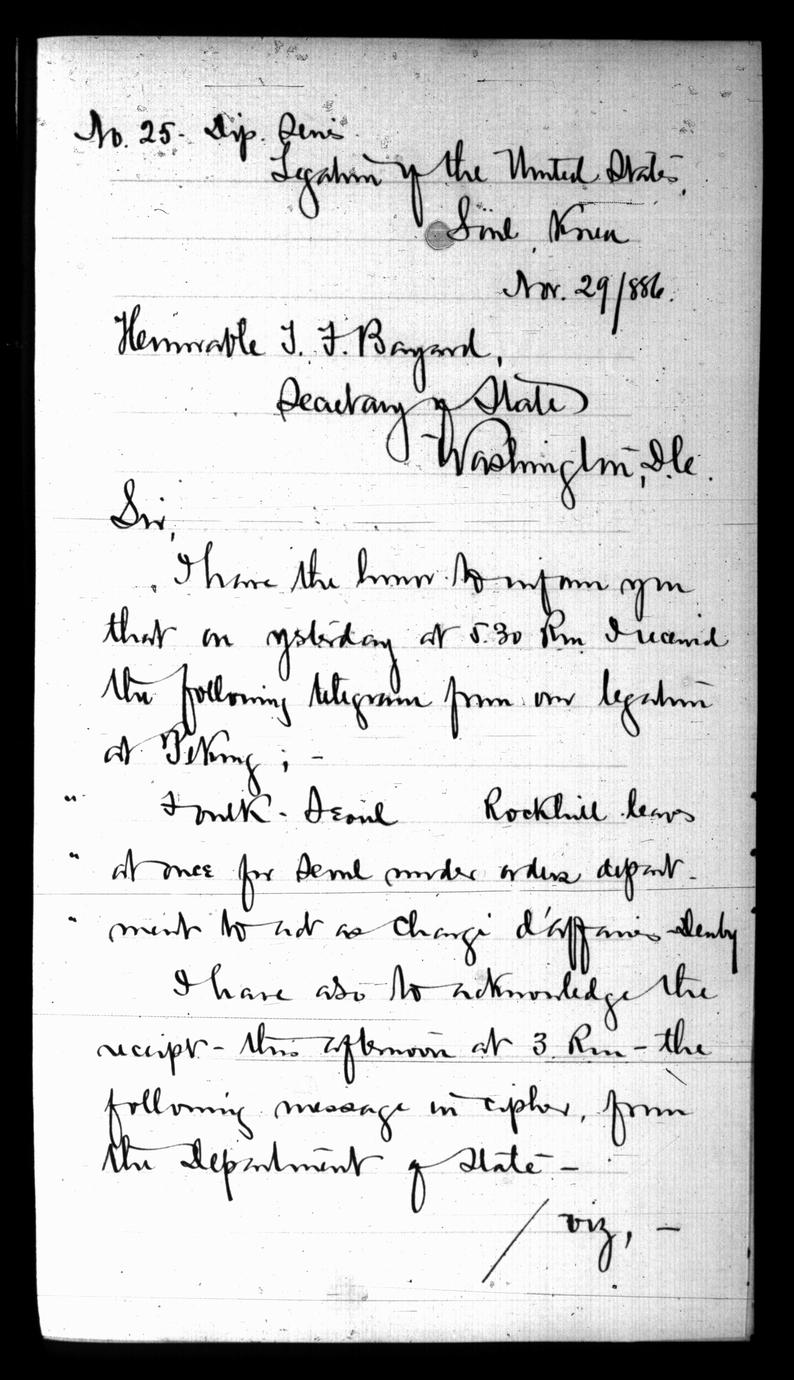 No. 25- Dip. Series
Legation of the United States,
Söul, Korea
Nov. 29/886.
Honorable T. F. Bayard,
Secretary of State
Washington, D.C.
Sir,
I have the honor to inform you
that on ysterday at 5.30 P.m I received
the following telegram from our legation
at Peking; -
" Foulk - Seoul Rockhill leaves
" at once for Seoul under orders depart-
" ment to act as Chargé d'affaires - Denby
I have also to acknowledge the
receipt - this afternoon at 3 P.m - the
following message in cipher, from
the Department of State -
/ viz, -